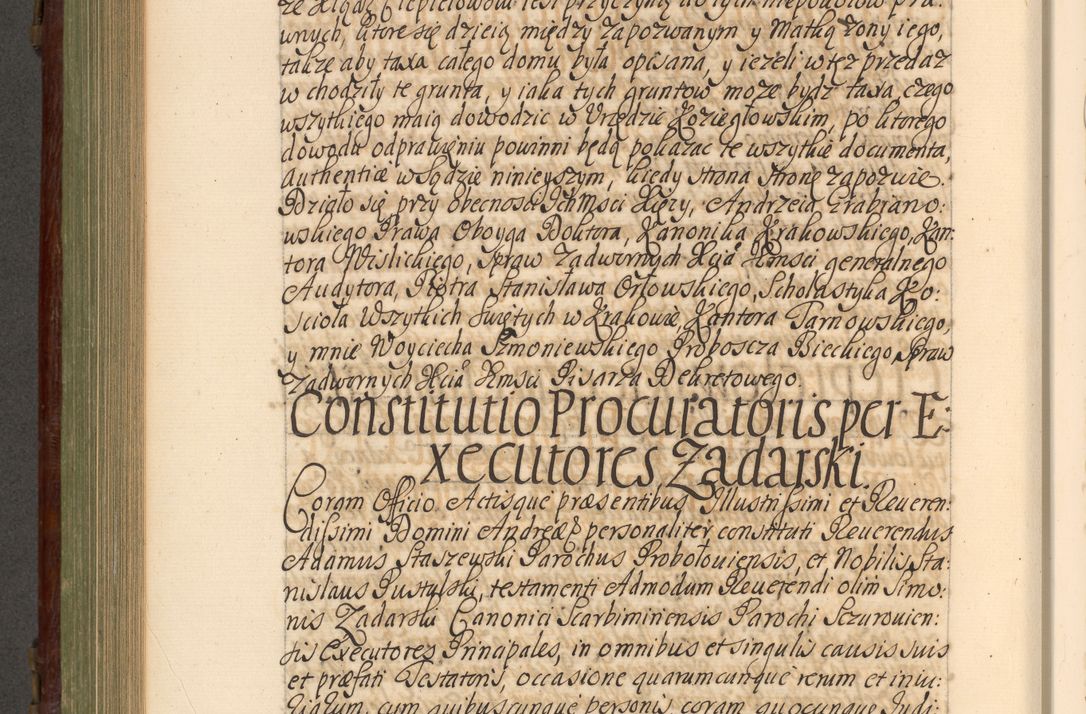 wnych, ktore się dzieią między zapozwanym y Matką żony iego,
także aby taxa całego domu była opisana, y ieżeli w też przedaż
wchodziły te grunta, y iaka tych gruntow może bydź taxa, czego
wszytkiego maią dowodzic w Vrzędzie Koziegłowskim, po ktorego
dowodu odprawieniu powinni będą pokazac te wszytkie documenta,
Authentice w Sądzie ninieyszym, kiedy strona stronę zapozwie.
Działo się przy obecnosci Ichmosci Xięży, Andrzeia Grabiano:
wskiego Prawa Oboyga Doktora, Kanonika Krakowskiego, Kan:
tora Wislickiego, Spraw Zadwornych Xcia Jmsci generalnego
Audytora, Piotra Stanisława Orłowskiego, Scholastyka Ko:
scioła Wszytkich Świętych w Krakowie Kantora Tarnowskiego,
y mnie Woyciecha Szmoniewskiego Proboscza Bieckiego, Spraw
Zadwornych Xcia Jmsci Pisarza Dekretowego.
Constitutio Procuratoris per E:
xecutores Zadarski.
Coram Officio Actisque præsentibus Illustrissimi et Reueren:
dissimi Domini Andreæ & personaliter constituti Reuerendus
Adamus Staszewski Parochus Probołouiensis, et Nobilis Sta:
nislaus Pustulski, testamenti Admodum Reuerendi olim Simo:
nis Zadarski Canonici Scarbimiriensis Parochi Sczurouien:
sis Executores Principales, in omnibus et singulis causis suis
et præfati Testatoris, occasione quarumcunque rerum et iniu:
riarum, cum quibuscunque personis coram quocunque Judi: